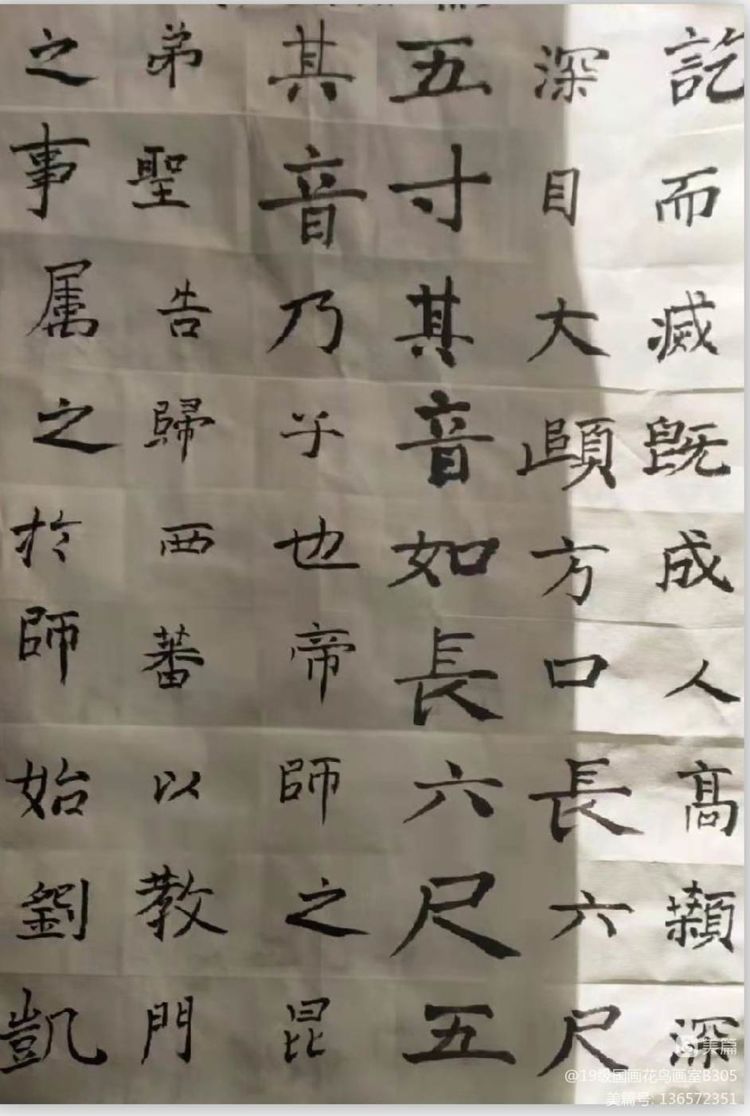 訖而滅既成人高顙深
深目大頤方口長六尺
五寸其音如長六尺五
其音乃乎也帝師之昆
弟聖告歸西蕃以教門
之事属之於師始劉凱
美篇
@19级国画花鸟画室B305
美篇号: 136572351